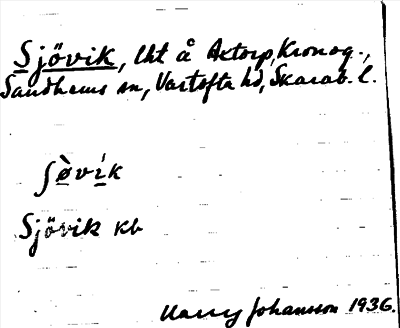 Sjövik, lht å Axtorp, Kronog.,
Sandhems sn, Vartofta hd, Skarab. l.
ʃø̀vík
Sjövik kb
Harry Johansson 1936.